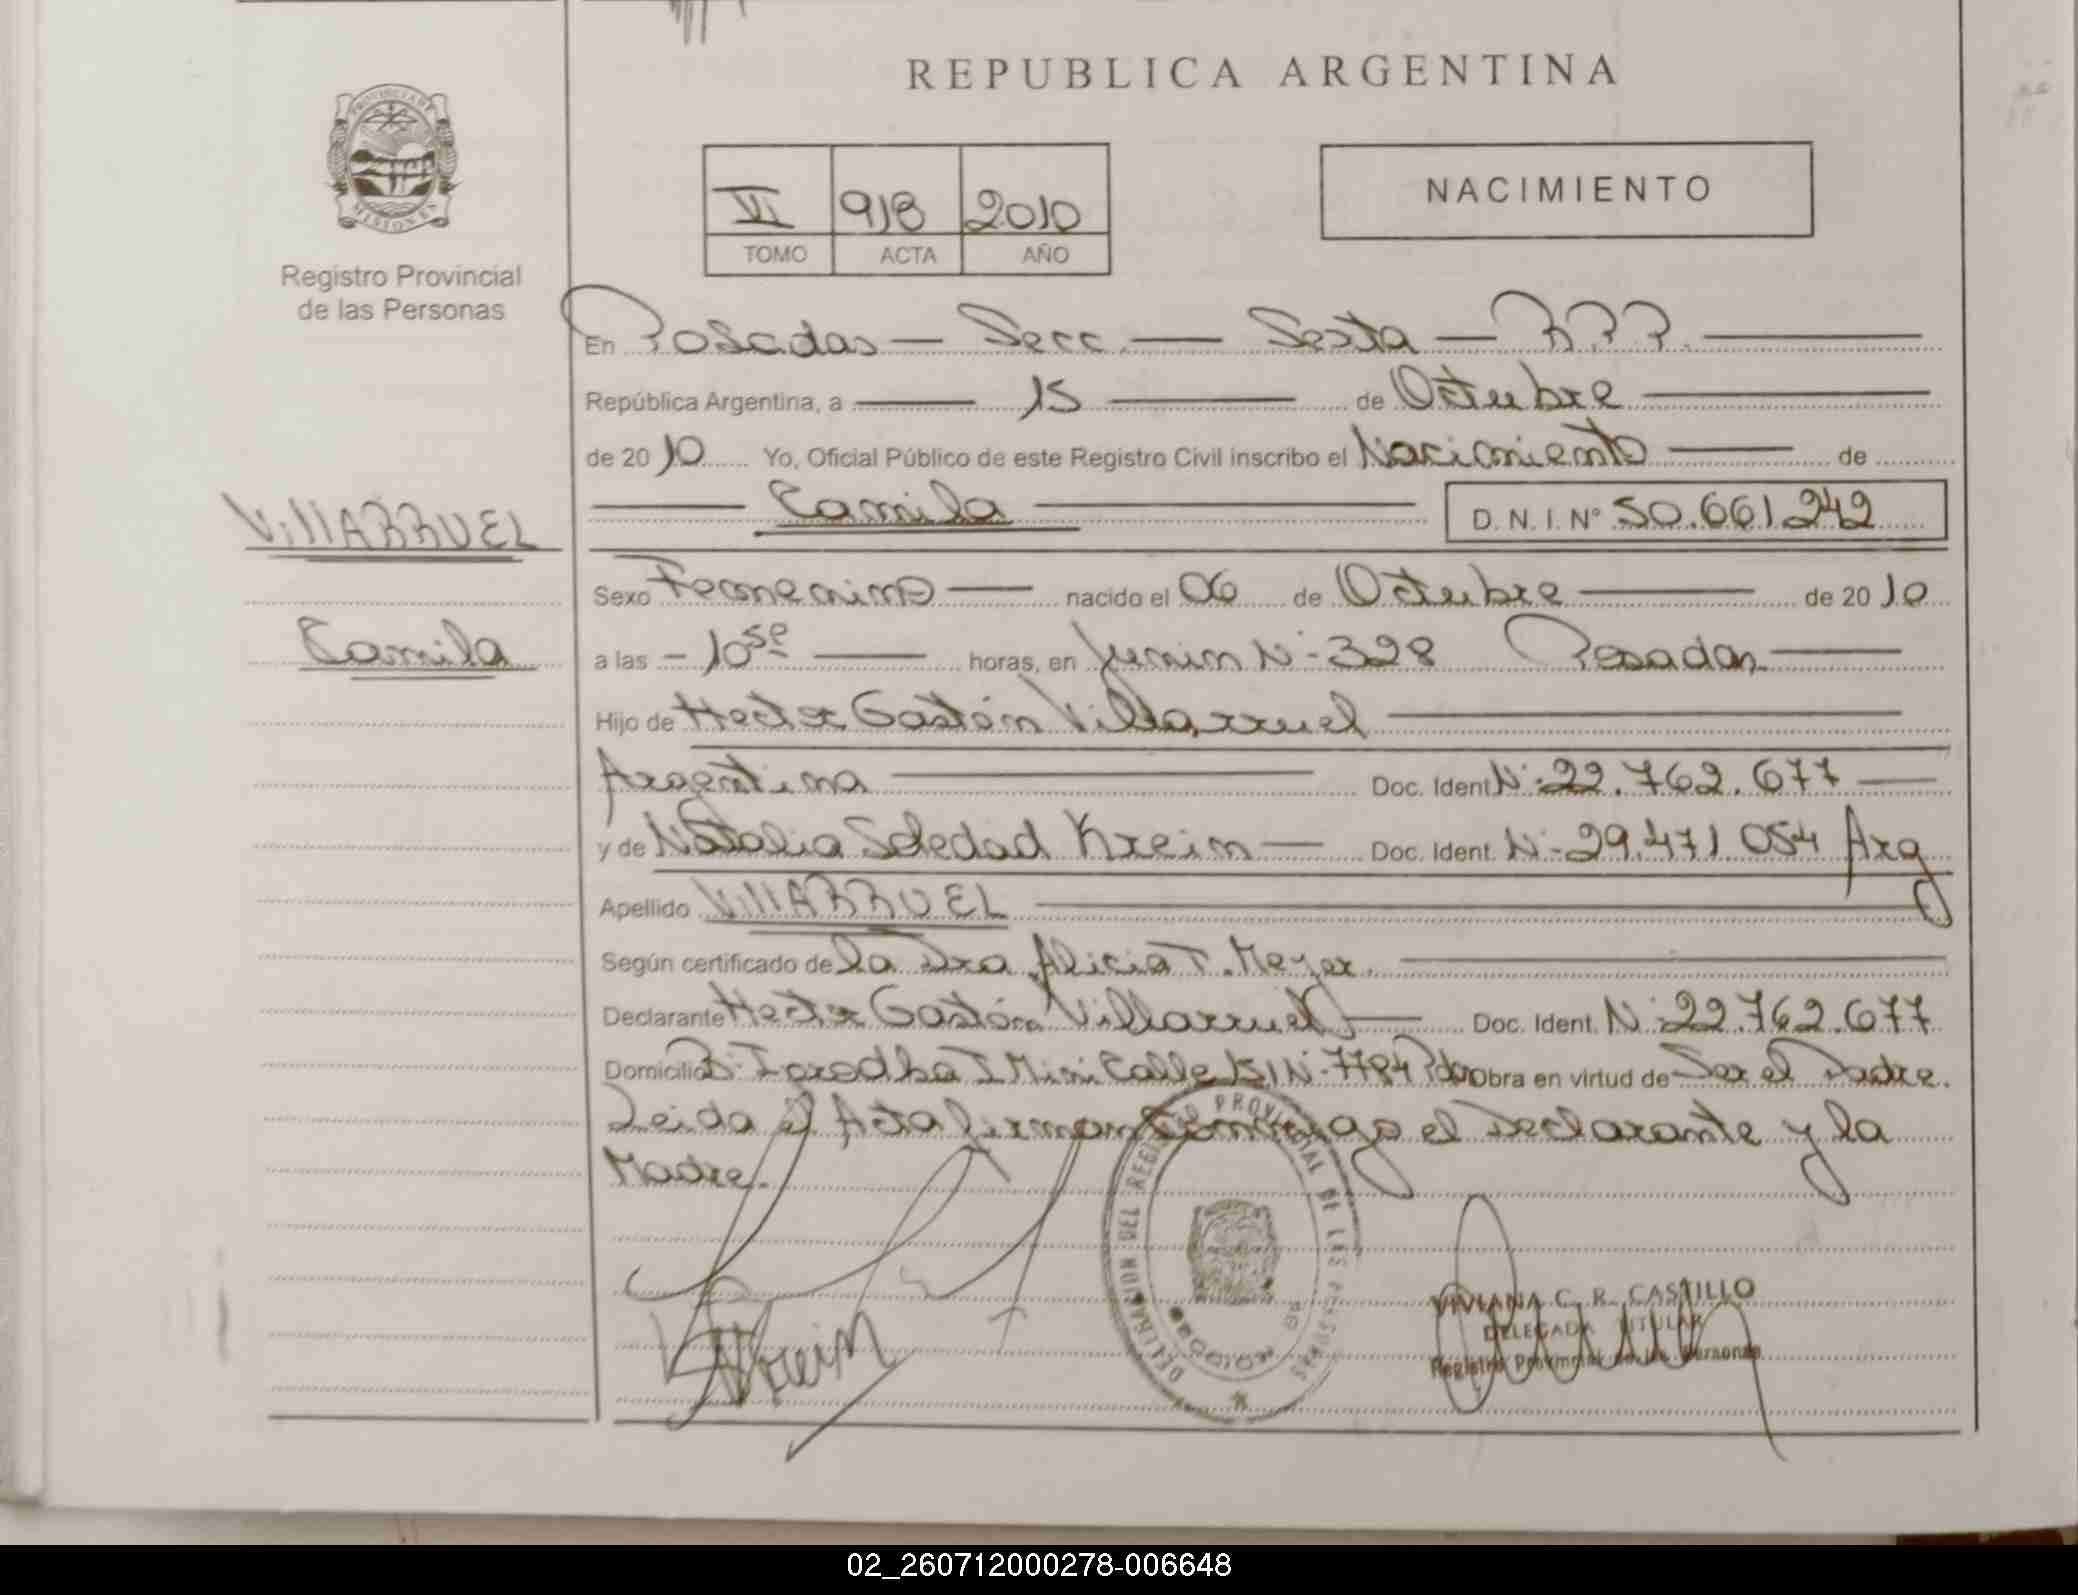 REPUBLICA ARGENTINA
PROVINCIA DE MISIONES
Registro Provincial
de las Personas
VI 918 2010
TOMO ACTA AÑO
NACIMIENTO
En Posadas — Secc. — Sexta — R P P.
República Argentina, a — 15 — de Octubre —
de 2010 Yo, Oficial Público de este Registro Civil inscribo el Nacimiento — de
— Camila — D. N. I. N° 50.661.242
VillARRUEL
Camila
Sexo Femenino — nacido el 06 de Octubre — de 2010
a las - 10 50 — horas, en Junin N- 328 Posadas —
Hijo de Hector Gastón Villarruel —
Argentina — Doc. Ident. N: 22.762.677 —
y de Natalia Soledad Krein — Doc. Ident. N- 29.471.054 Arg
Apellido VillARRUEL —
Según certificado de la Dra Alicia T. Meyer. —
Declarante Hector Gastón Villarruel — Doc. Ident. N: 22.762.677
Domicilio B: Calle N- 7784 Pdas Obra en virtud de Ser el Padre.
Leida el Acta firman conmigo el Declarante y la
Madre.
Krein
DELEGACION DEL REGISTRO PROVINCIAL DE LAS PERSONAS
VIVIANA C. R. CASTILLO
DELEGADA TITULAR
Registro Provincial de las Personas
02_260712000278-006648